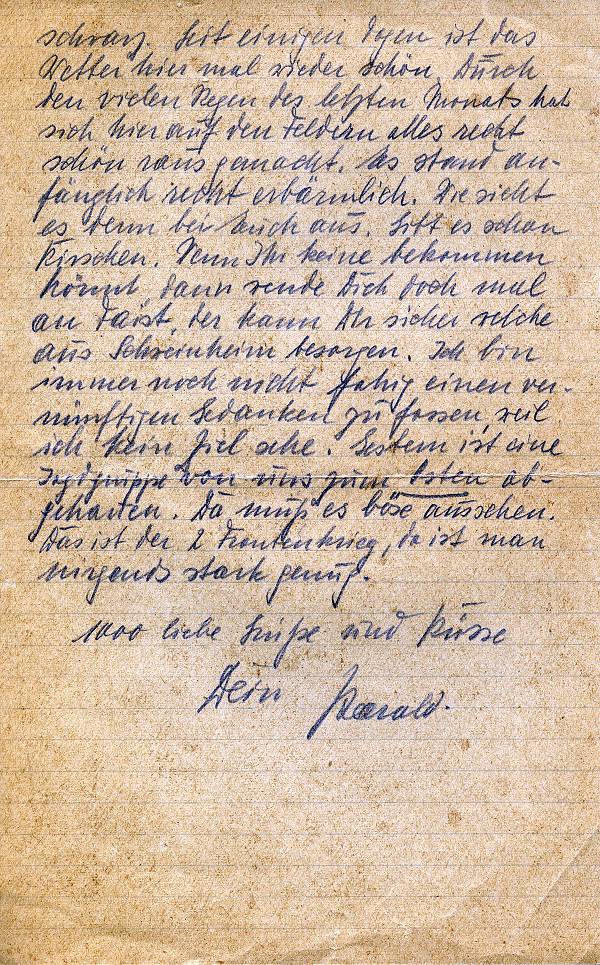 schwarz. Seit einigen Tagen ist das
Wetter hier mal wieder schön. Durch
den vielen Regen des letzten Monats hat
sich hier auf den Feldern alles recht
schön raus gemacht. Es stand an-
fänglich recht erbärmlich. Wie sieht
es denn bei Euch aus. Gibt es schon
Kirschen. Wenn Ihr keine bekommen
könnt, dann wende Dich doch mal
an der kann Dir sicher welche
aus besorgen. Ich bin
immer noch nicht fähig einen ver-
nünftigen Gedanken zu fassen, weil
ich kein Ziel sehe. Gestern ist eine
Jagdgruppe von uns zum Osten ab-
gehauen. Da muß es böse aussehen.
Das ist der 2 Frontenkrieg, da ist man
nirgends stark genug.
1000 liebe Grüße und Küsse
Dein Harald.